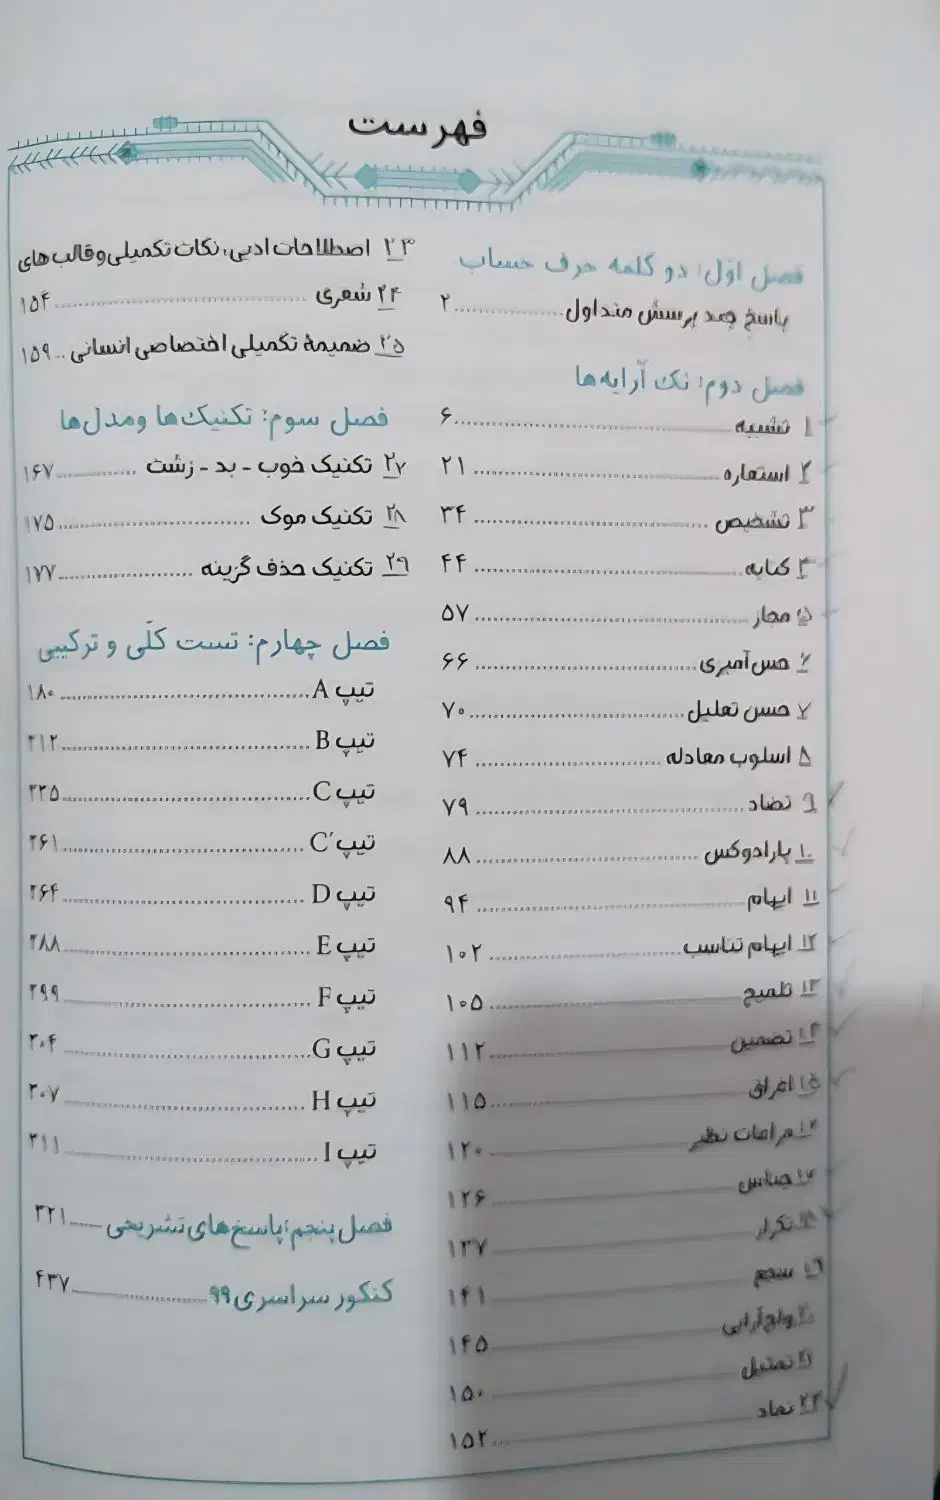 فهرست
فصل اوّل: دو کلمه حرف حساب
پاسخ چند پرسش متداول ۲
فصل دوم: تک آرایه‌ها
۱ تشبیه ۶
۲ استعاره ۲۱
۳ تشخیص ۳۴
۴ کنایه ۴۴
۵ مجاز ۵۷
۶ حس‌آمیزی ۶۶
۷ حسن تعلیل ۷۰
۸ اسلوب معادله ۷۴
۹ تضاد ۷۹
۱۰ پارادوکس ۸۸
۱۱ ایهام ۹۴
۱۲ ایهام تناسب ۱۰۲
۱۳ تلمیح ۱۰۵
۱۴ تضمین ۱۱۲
۱۵ اغراق ۱۱۵
۱۶ مراعات نظیر ۱۲۰
۱۷ جناس ۱۲۶
۱۸ تکرار ۱۳۷
۱۹ سجع ۱۴۱
۲۰ واج‌آرایی ۱۴۵
۲۱ تمثیل ۱۵۰
۲۲ نماد ۱۵۲
۲۳ اصطلاحات ادبی، نکات تکمیلی و قالب‌های
۲۴ شعری ۱۵۴
۲۵ ضمیمهٔ تکمیلی اختصاصی انسانی ۱۵۹
فصل سوم: تکنیک‌ها و مدل‌ها
۲۷ تکنیک خوب - بد - زشت ۱۶۷
۲۸ تکنیک موک ۱۷۵
۲۹ تکنیک حذف گزینه ۱۷۷
فصل چهارم: تست کلّی و ترکیبی
تیپ A ۱۸۰
تیپ B ۲۱۲
تیپ C ۲۲۵
تیپ C′ ۲۶۱
تیپ D ۲۶۴
تیپ E ۲۸۸
تیپ F ۲۹۹
تیپ G ۳۰۴
تیپ H ۳۰۷
تیپ I ۳۱۱
فصل پنجم: پاسخ‌های تشریحی ۳۲۱
کنکور سراسری ۹۹ ۴۳۷